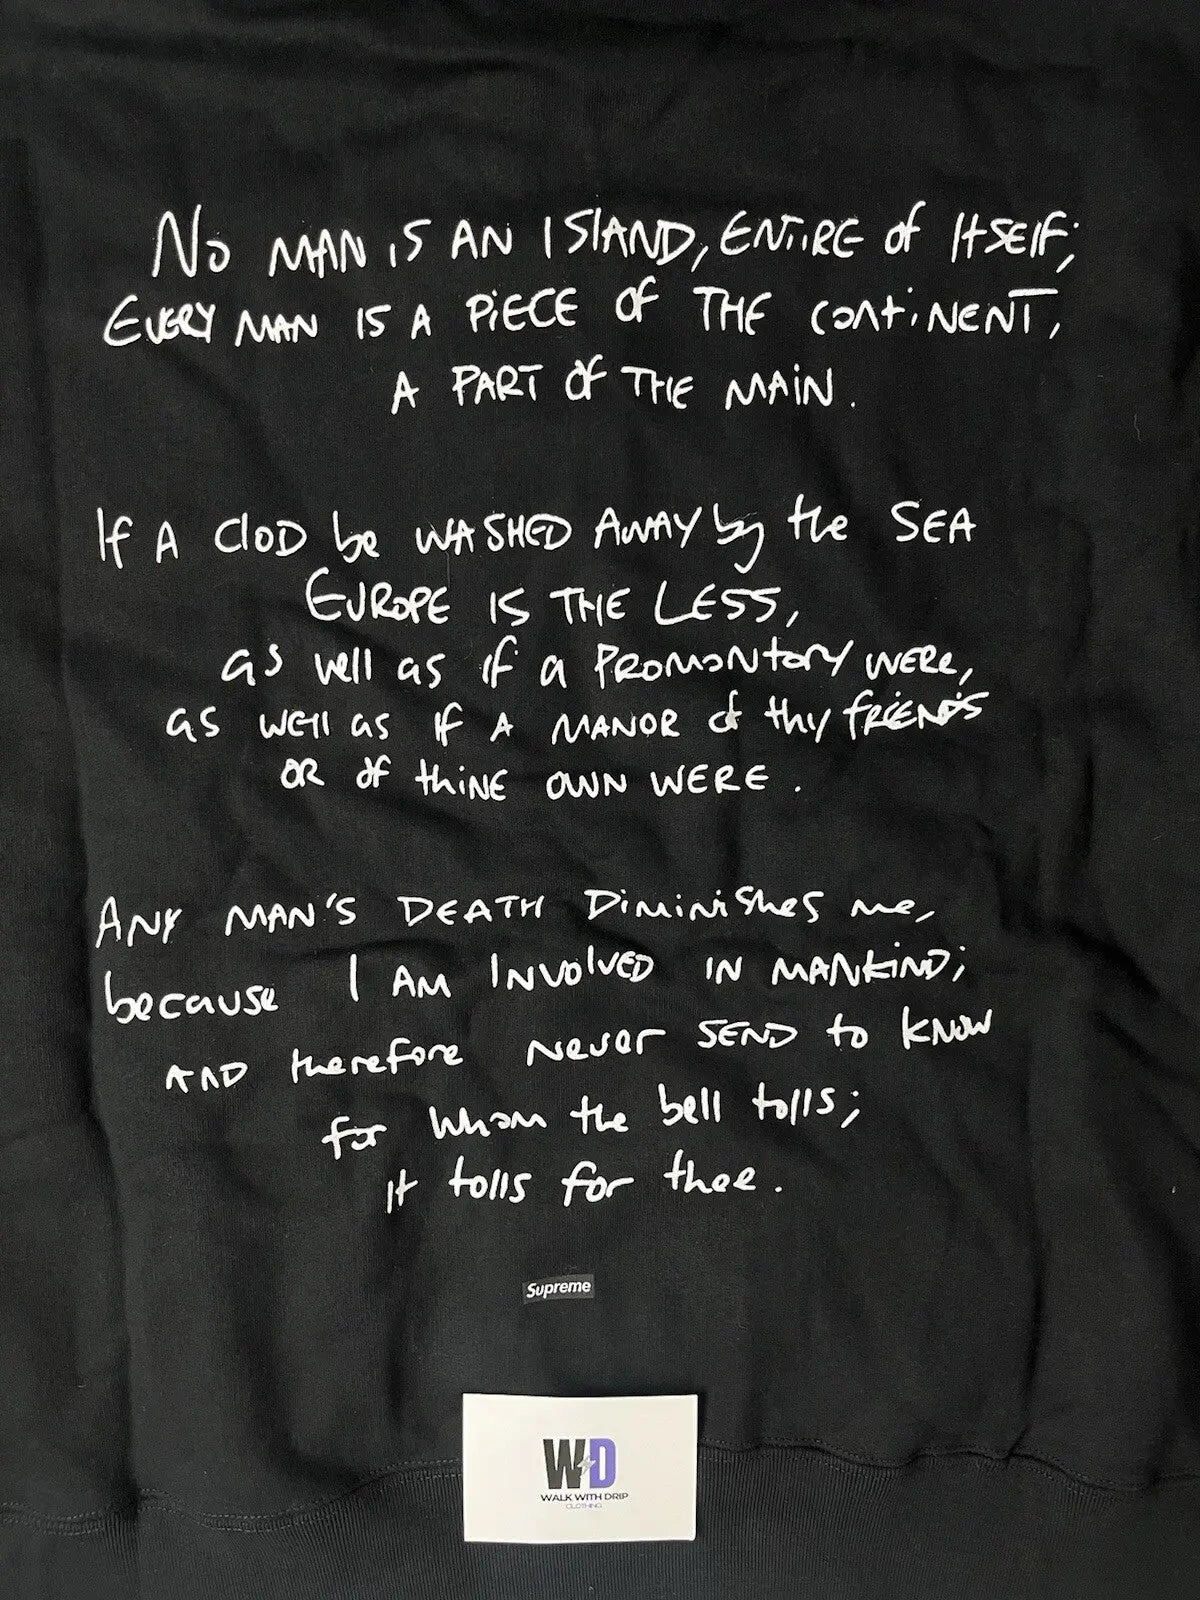 No MAN IS AN ISLAND, ENTIRE of ItSElF;
EVERY MAN IS A PIECE OF THE CONtINENT,
A PART OF THE MAIN.
If A Clod be WASHED AWAY by the SEA
EUROPE IS THE LESS,
as well as if a PROMONtORY WERE,
as well as If A MANOR of thy FRIEND'S
OR of thiNE OWN WERE.
ANY MAN'S DEATH DiminiShes me,
because I AM INVOlVED IN MANKIND;
AND therefore Never SEND to KNOW
for whom the bell tolls;
It tolls for thee.
Supreme
WD
WALK WITH DRIP
CLOTHING